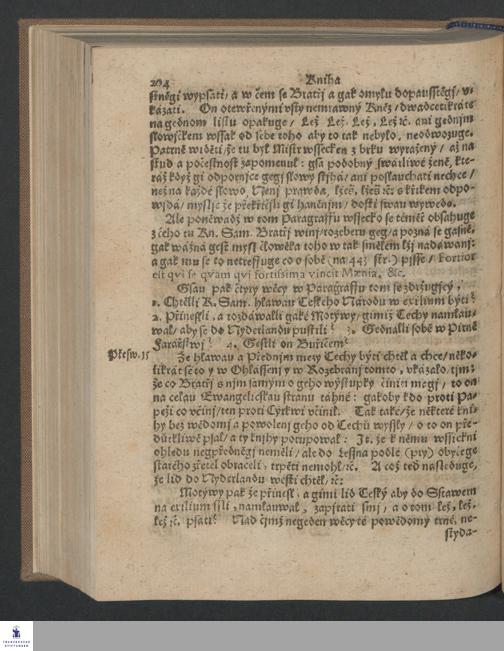 204 Kniha
stněgi wypsati/ a w čem se Bratřj a gak omylu dopausstěgj/ v-
kázati. On otewřenými vsty nemrawný Kněz/ dwadcetikráte
na gednom listu opakuge/ Lež Lež, Lež, Lež ꝛc. ani gednjm
slowjčkem wssak od sebe toho aby to tak nebylo, neodwozuge.
Patrně widěti, že tu byl Mistr wssecken z brku wyražený/ až na
stud a počestnost zapomenul: gsa podobný swárliwé ženě, kte-
ráž když gj odpornice gegj slowy stjhá/ ani poslauchati nechce/
než na každé slowo, Nenj prawda, lžeš, lžeš ꝛc: s křikem odpo-
wjdá/ myslje že překřičžj gi haněnjm/ dosti swau wywedà.
Ale poněwadž w tom Paragraffu wssecko se téměř obsahuge
z čeho tu Kn. Sam. Bratřj winj/ rozeberu geg/ a pozná se gasně,
gak wážná gest mysl člowěka toho w tak smělém lži nadáwanj:
a gak mu se to netreffuge co o sobě (na 443 str.) pjsse/ Fortior
est qvi se qvàm qvi fortissima vincit Mœnia. &c.
Gsau pak čtyry wěcy w Paragraffu tom se zdržugjcý,
1. Chtělli K. Sam. hlawau Českého Národu w exilium býti?
2. Přineslli, a rozdáwalli gaké Motýwy/ gimiž Čechy namlau-
wal/ aby se do Nyderlandu pustili? 3. Gednalli sobě w Pirně
Farářstwj? 4. Gestli on Buřičem?
Přesw. 15 Že hlawau a Přednjm mezy Čechy býti chtěl a chce/ něko-
likrát se to y w Ohlássenj y w Rozebránj tomto, vkázalo, tjm:
že co Bratřj s njm samým o geho wýstupky činiti magj/ to on
na celau Ewangelickau stranu táhne: gakoby kdo proti Pa-
peži co včinj/ ten proti Cýrkwi včinil. Tak také/ že některé kni-
hy bez wědomj a powolenj geho od Čechů wyssly/ o to on pře-
důtkliwě psal/ a ty knihy potupowal: It. že k němu wssickni
ohledu negpředněgj neměli/ ale do Lessna podlé (prý) obyčege
starého zřetel obraceli, trpěti nemohl/ ꝛc. A což ted následuge,
že lid do Nyderlandu wésti chtěl/ ꝛc:
Motýwy pak že přinesl, a gimi lid Český aby do Sstawem
na exilium ssli, namlauwal, zapjrati smj/ a o tom lež, lež,
lež ꝛc. psáti? Nad čjmž negeden wěcy té powědomý trne, ne-
styda-